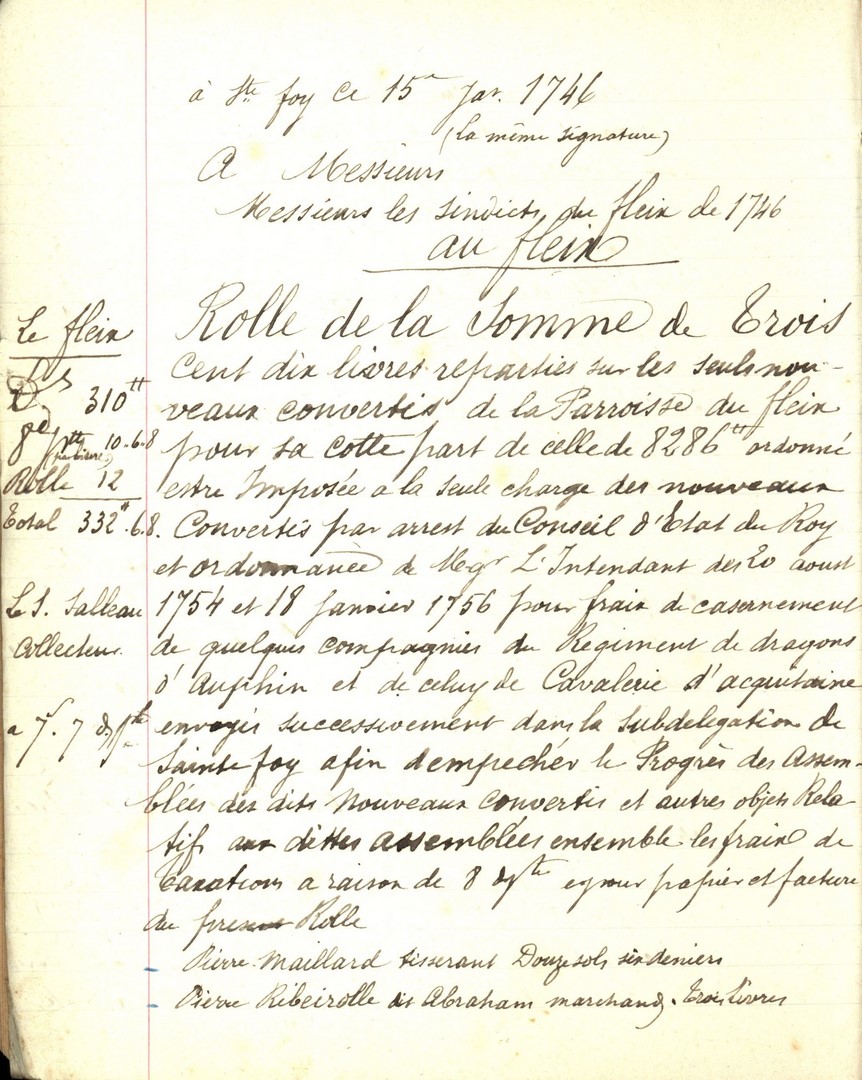 à Ste foy ce 15e Jar. 1746
(La même signature)
A Messieurs
Messieurs les sindicts du fleix de 1746
au fleix
Rolle de la Somme de Trois
cent dix livres reparties sur les seuls nou-
veaux convertis de la Parroisse du fleix
pour sa cotte part de celle de 8286tt ordonné
estre Imposée a la seule charge des nouveaux
Convertis par arrest du Conseil d'Etat du Roy
et ordonnance de Mgr L'Intendant des 20 aoust
1754 et 18 Janvier 1756 pour frais de casernement
de quelques compagnies du Regiment de dragons
d'Auphin et de celuy de Cavalerie d'acquitaine
envoyés successivement dans la Subdelegation de
Sainte foy afin dempecher le Progrès des Assem-
blées des dits Nouveaux convertis et autres objets Rela-
tifs aux dittes assemblées ensemble les frais de
Taxations a raison de 8 drs pte et pour papier et facture
du present Rolle
Pierre Maillard tisserant Douze sols six deniers
Pierre Ribeirolle dit Abraham marchand. Trois livres
Le fleix
310tt
10.6.8
Rolle 12
Total 332tt.6.8.
Le S. Salleau
Collecteur.